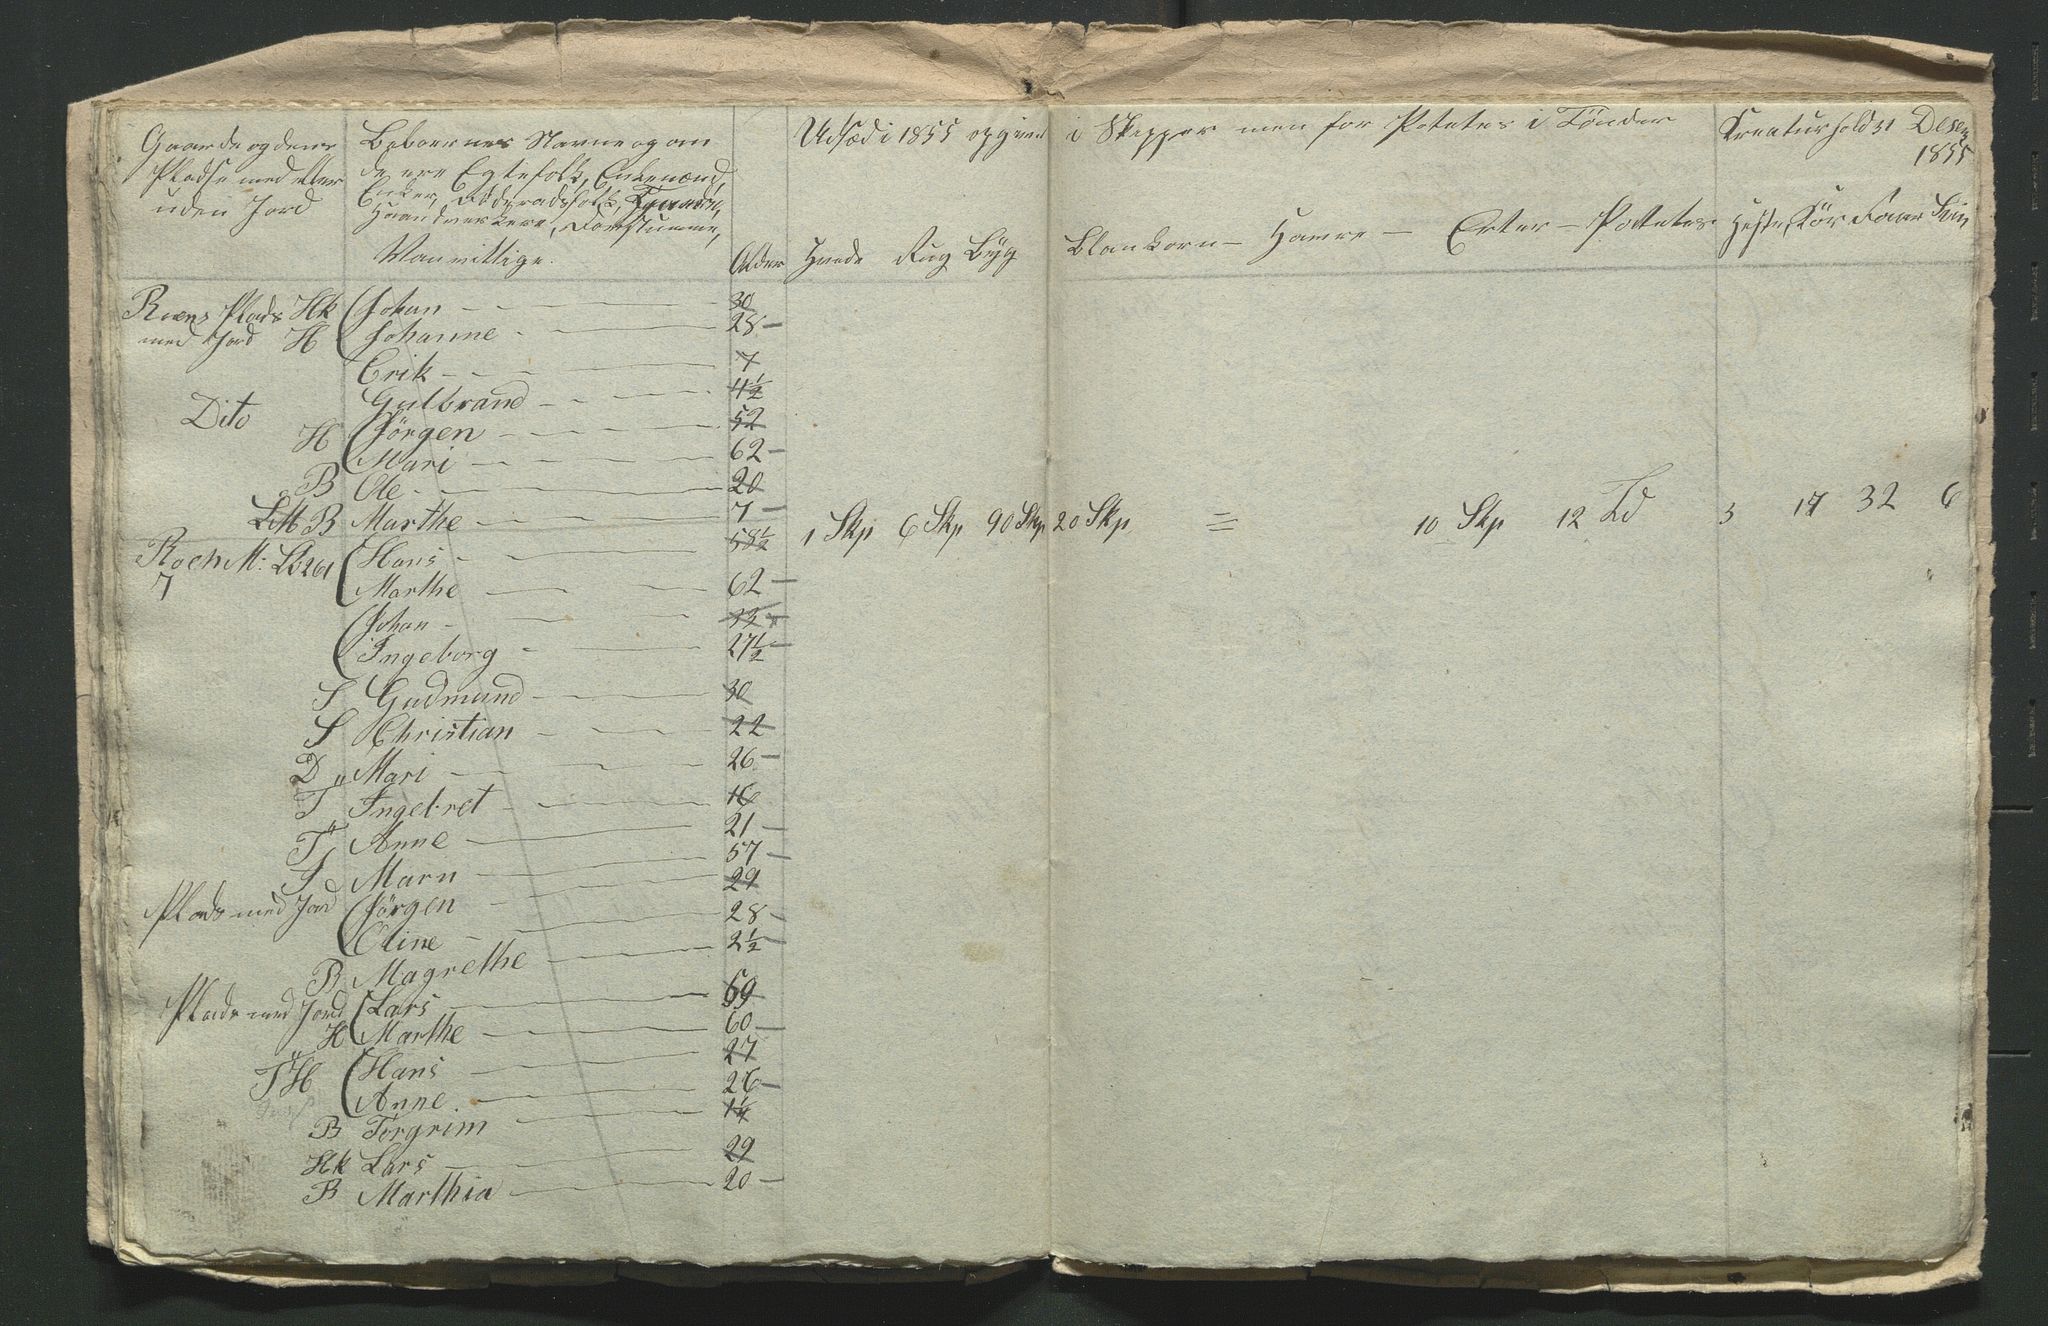 Gaarde og dens
Pladse med eller
uden Jord
Beboernes Navne og om
de ere Egtefolk, Enkemænd,
Enker, Föderaadsfolk,
Haandverkere, Døvstumme,
Vanvittige.
Alder
Udsæd i 1855 opgivet i Skjepper men for Potetes i Tønder
Hvede Rug Byg Blankorn – Havre – Erter – Potetes
Kreaturhold 31 Desem
1855
Heste, Kör Faar Svin
Ruens Plads Hk Johan 30
med Jord H Johanne 28
Erik 7
Gulbrand 4½
Dito Jörgen 52
H Mari 62
B Ole 20
Litt B Marthe 7
1 Skp 6 Skp 90 Skp 20 Skp = 10 Skp 12 Td 3 17 32 6
Roen M: Lb 261 Hans 58½
7 Marthe 62
Johan
Ingeborg 27½
S Gudmund 30
S Christian 22
D Mari 26
T Ingebret 16
T Anne 21
I Marn 57
Plads med Jord Jörgen 29
Oline 28
B Magrethe 2½
Plads med Jord Lars 69
H Marthe 60
T H Hans 27
Anne 26
B Torgrim 1¼
Hk Lars 29
B Marthia 20